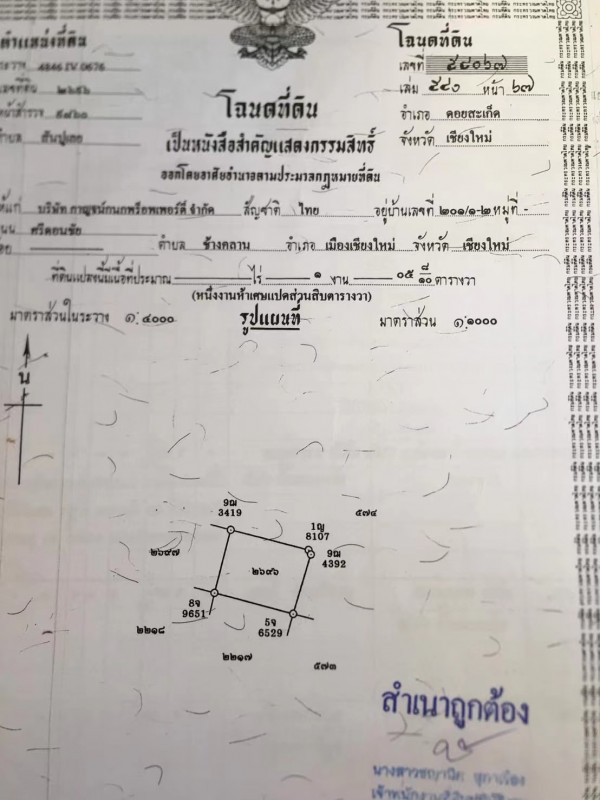 ตำแหน่งที่ดิน
โฉนดที่ดิน
ระวาง 4846 IV 0676
เลขที่ ๕๔๐๖๗
เลขที่ดิน ๒๖๙๖
เล่ม ๕๔๐ หน้า ๖๗
หน้าสำรวจ
โฉนดที่ดิน
อำเภอ ดอยสะเก็ด
ตำบล สันปูเลย
เป็นหนังสือสำคัญแสดงกรรมสิทธิ์
จังหวัด เชียงใหม่
ออกโดยอาศัยอำนาจตามประมวลกฎหมายที่ดิน
ให้แก่ บริษัท กาญจน์กนกพร็อพเพอร์ตี้ จำกัด สัญชาติ ไทย อยู่บ้านเลขที่ ๒๐๑/๑-๒ หมู่ที่ -
ถนน ศรีดอนชัย
ซอย ตำบล ช้างคลาน อำเภอ เมืองเชียงใหม่ จังหวัด เชียงใหม่
ที่ดินแปลงนี้มีเนื้อที่ประมาณ ไร่ ๑ งาน ๐๕ ๘/๑๐ ตารางวา
(หนึ่งงานห้าเศษแปดส่วนสิบตารางวา)
มาตราส่วนในระวาง ๑:๔๐๐๐ รูปแผนที่ มาตราส่วน ๑:๑๐๐๐
น
9ฌ
3419
๕๗๔
1ญ
8107
๒๖๙๗
9ฌ
4392
๒๖๙๖
8จ
9651
5จ
6529
๒๒๑๘
๒๒๑๗
๕๗๓
สำเนาถูกต้อง